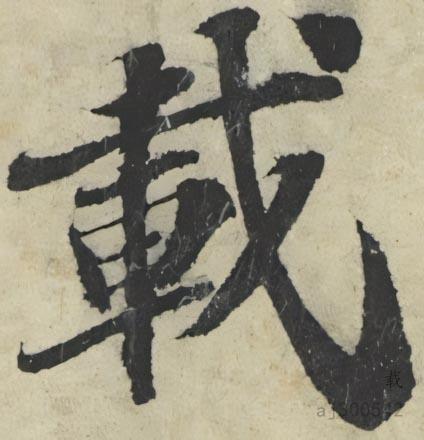 載
載
aj300512